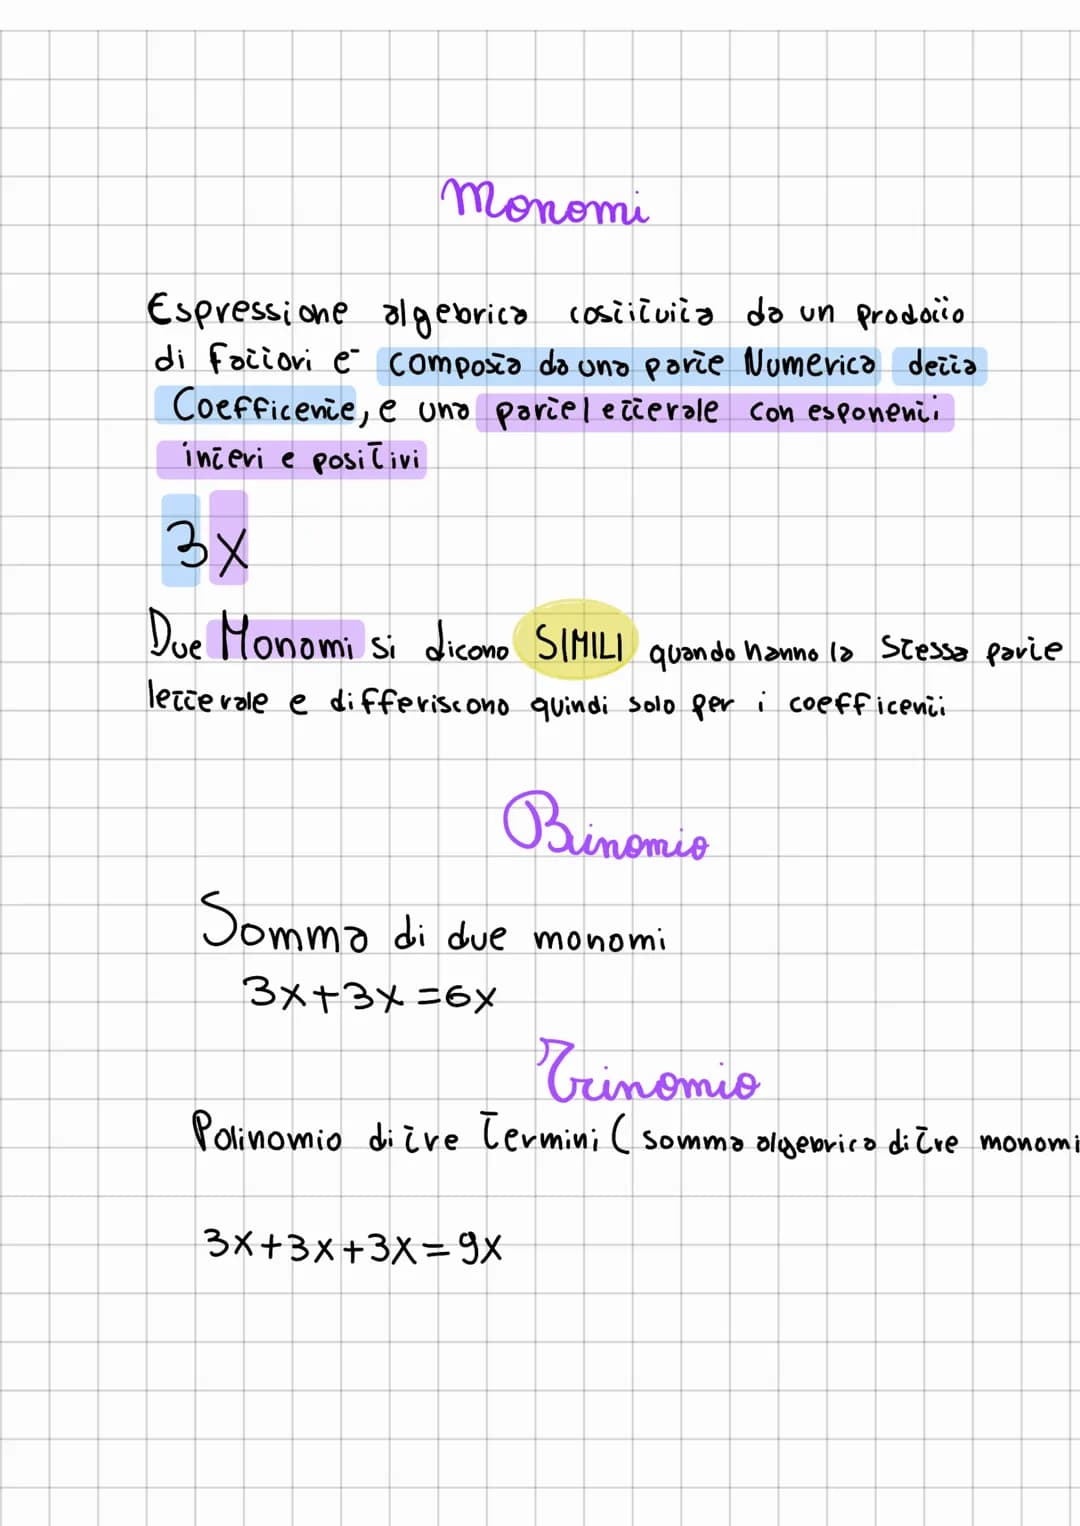 Monomi
Espressione algebrica costituita da un prodotto
di fattori e composta da una parte Numerica detta
Coefficente, e una parte letterale con esponenti
interi e positivi
3x
Due Monomi si dicono SIMILI quando hanno la stessa parte
letterale e differiscono quindi solo per i coefficenti
Binomio
Somma di due monomi
3x+3x=6x
Trinomio
Polinomio di tre Termini ( somma algebrica di tre monomi
3x+3x+3x=9x